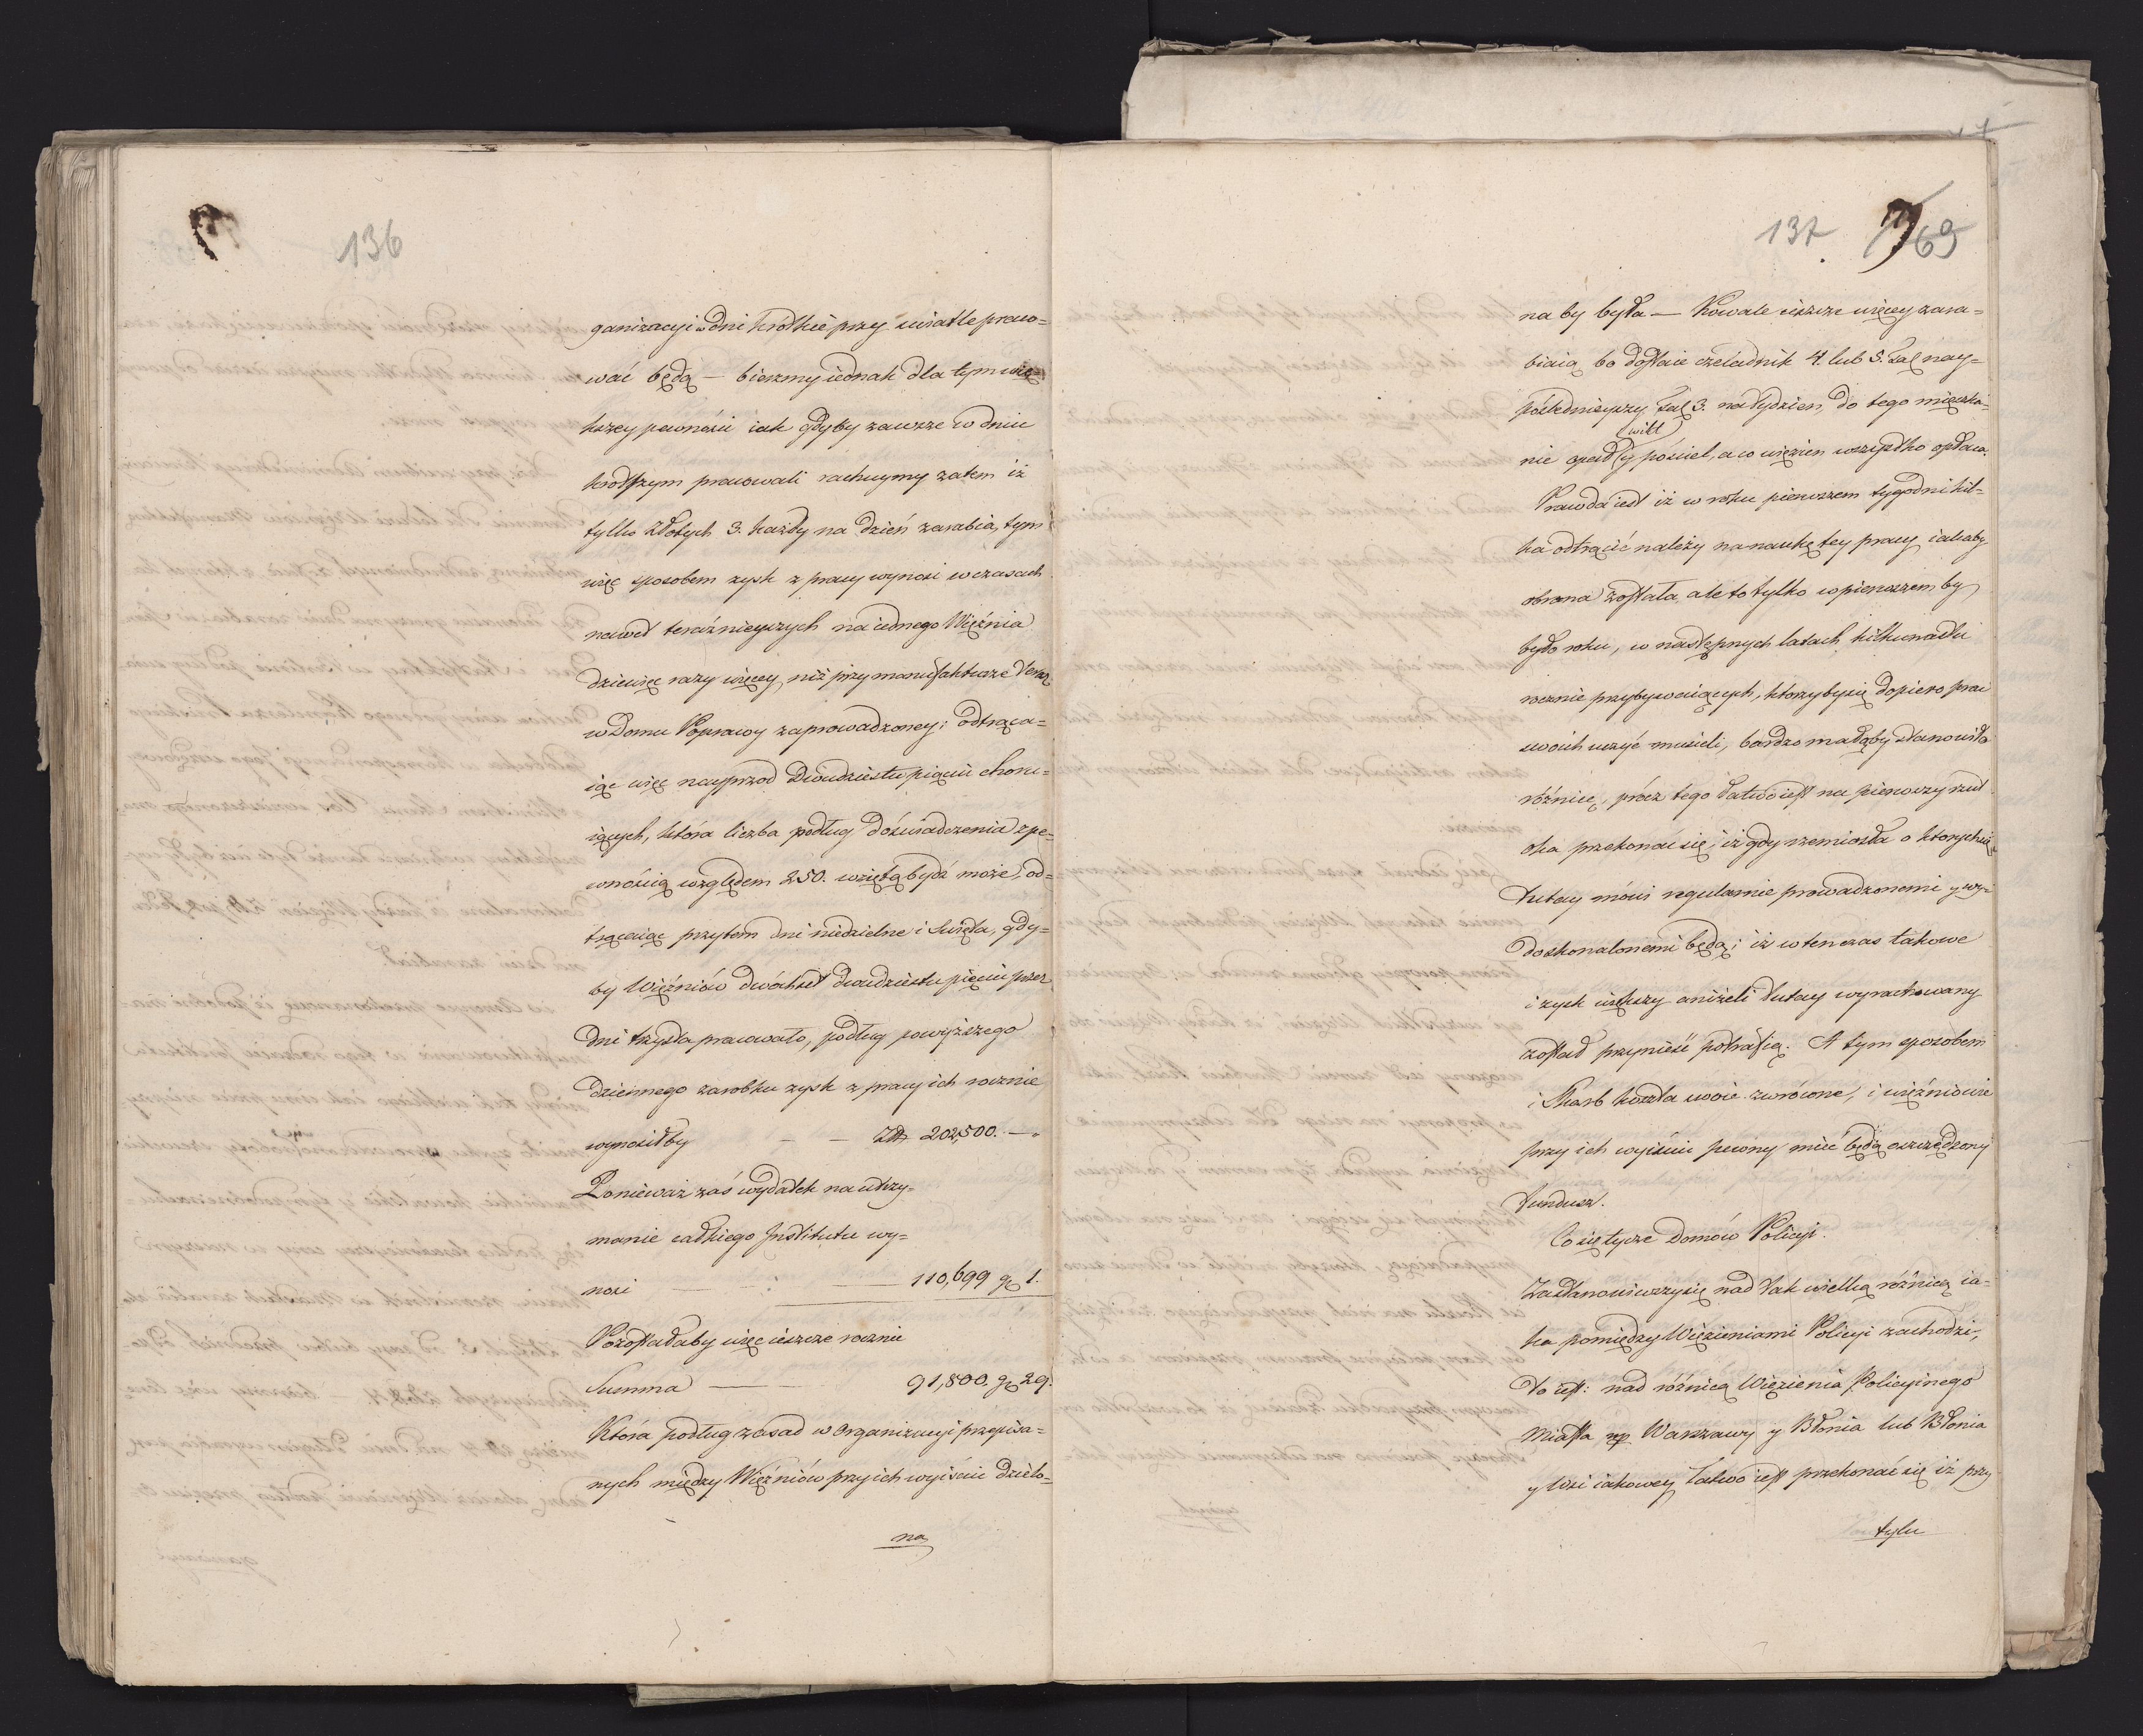 136
ganizacyi w dni krótkie przy świetle praco=
wać będą — bierzmy iednak dla tym wię=
kszey pewności iak gdyby zawsze w dniu
krotszym pracowali rachuymy zatem iż
tylko Złotych 3. każdy na dzień zarabia, tym
więc sposobem zysk z pracy wynosi w czasach
nawet teraźnieyszych na iednego Więźnia
dziewięc razy więcey, niż przy manufakturze teraz
w Domu Poprawy zaprowadzoney; odtrąca=
iąc więc nayprzod dwudziestu pięciu choru=
iących, która liczba podług doświadczenia z pe=
wnością względem 250. wziętą bydź może, od=
trącaiąc przytem dni niedzielne i Swięta, gdy=
by Więźniów dwóchset dwudziestu pięciu przez
dni trzysta pracowało, podług powyższego
dziennego zarobku zysk z pracy ich rocznie
wynosiłby — — Złp. 202,500. —
Ponieważ zaś wydatek na utrzy=
manie całkiego Institutu wy=
nosi — — 110,699 gr 1.
Pozostałaby więc ieszcze rocznie
Summa — — 91,800. gr 29.
Która podług zasad w Organizacyi przepisa=
nych między Więźniów przy ich wyiściu dzielo=
na
137 69
na by była — Kowale ieszcze więcey zara=
biaią bo dostaie czeladnik 4. lub 5. Tal nay=
poślednieyszy Tal 3. na tydzien, do tego mięszka=
wikt
nie opał y pościel, a co więzien wszystko opłaca.
Prawda iest iż w roku pierwszem tygodni kil=
ka odtrącić należy na naukę tey pracy iakaby
obrana została, ale to tylko w pierwszem by
było roku, w następnych latach kilkunastu
rocznie przybywaiących, ktorzyby się dopiero prac
swoich uczyć musieli, bardzo małąby stanowiło
różnicę, prócz tego łatwo iest na pierwszy rzut
oka przekonać się, iż gdy rzemiosła o ktorych się
tutay mówi regularnie prowadzonemi y wy=
doskonalonemi będą; iż w ten czas takowe
i zysk większy aniżeli tutay wyrachowany
zostać przynieść potrafią. A tym sposobem
i Skarb koszta swoie zwrócone, i więźniowie
przy ich wyiściu pewny mieć będą oszczędzony
fundusz.
Co się tycze Domów Policyi.
Zastanowiwszy się nad tak wielką różnicą ia=
ka pomiędzy Więzieniami Policyi zachodzi,
to iest: nad różnicą Więzienia Policyinego
Miasta np Warszawy y Błonia lub Błonia
y Wsi iakowey łatwo iest przekonać się iż przy
tylu